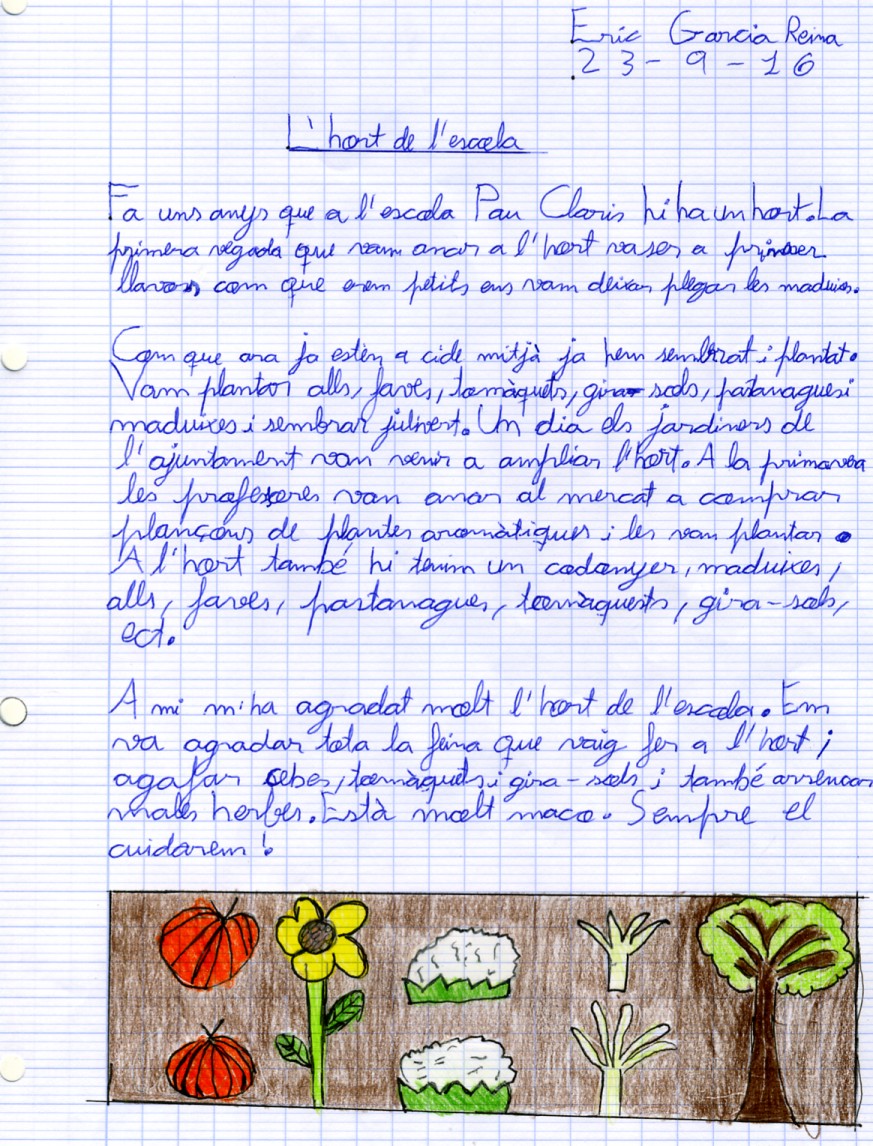 Eric Garcia Reina
23-9-16
L'hort de l'escola
Fa uns anys que a l'escola Pau Claris hi ha un hort. La
primera vegada que vam anar a l'hort va ser a primer
llavors com que erem petits ens vam deixar plegar les maduixes.
Com que ara ja estèn a cicle mitjà ja hem sembrat i plantat.
Vam plantar alls, faves, tomàquets, gira-sols, patanagues i
maduixes i sembrar julivert. Un dia els jardiners de
l'ajuntament van venir a ampliar l'hort. A la primavera
les professores van anar al mercat a comprar
plançons de plantes aromàtiques i les van plantar.
A l'hort també hi tenim un codonyer, maduixes,
alls, faves, pastanagues, tomàquests, gira-sols,
ect.
A mi m'ha agradat molt l'hort de l'escola. Em
va agradar tota la feina que vaig fer a l'hort;
agafar cebes, tomàquets i gira-sols i també arrencar
males herbes. Està molt maco. Sempre el
cuidarem!